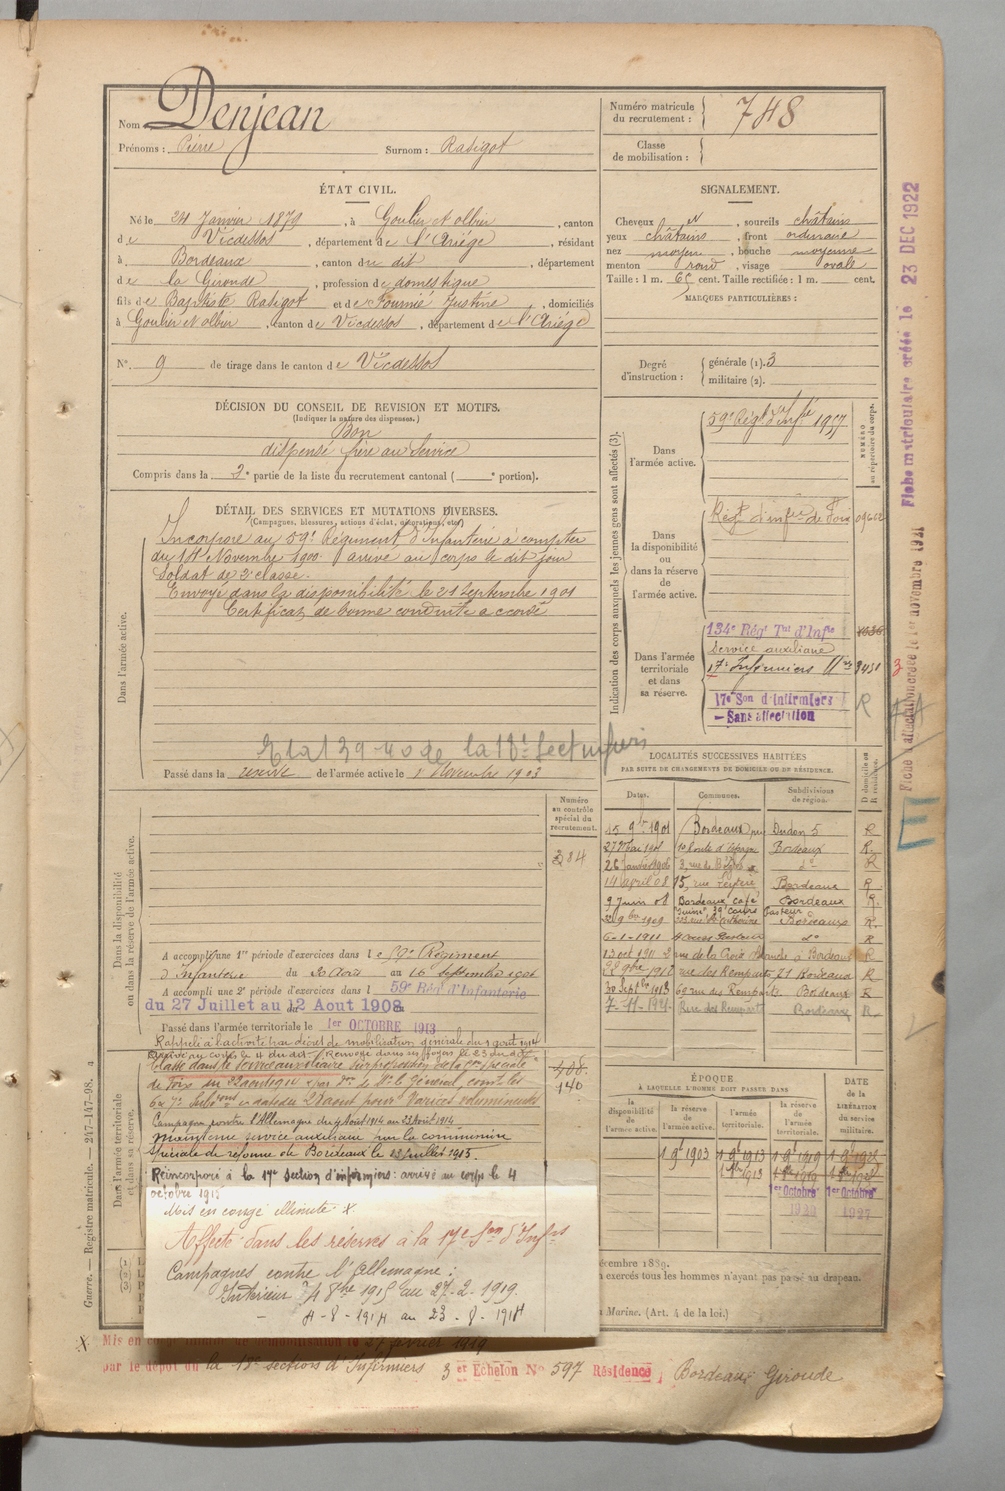 Nom Denjean
Prénoms : Pierre Surnom : Rasigot
Numéro matricule du recrutement : 748
Classe de mobilisation :
ÉTAT CIVIL.
Né le 24 Janvier 1879, à Goulier et olbier, canton
de Vicdessos, département de l'Ariège, résidant
à Bordeaux, canton du dit, département
de la Gironde, profession de domestique
fils de Baptiste Rasigot et de Fournié Justine, domiciliés
à Goulier et olbier, canton de Vicdessos, département de l'Ariège
N° 9 de tirage dans le canton de Vicdessos
SIGNALEMENT.
Cheveux et, sourcils châtains
yeux châtains, front ordinaire
nez moyen, bouche moyenne
menton rond, visage ovale
Taille : 1 m. 65 cent. Taille rectifiée : 1 m. cent.
MARQUES PARTICULIÈRES :
Degré d'instruction : générale (1). 3
militaire (2).
DÉCISION DU CONSEIL DE REVISION ET MOTIFS.
(Indiquer la nature des dispenses.)
Bon
dispensé frère au Service
Compris dans la 2e partie de la liste du recrutement cantonal ( e portion).
DÉTAIL DES SERVICES ET MUTATIONS DIVERSES.
(Campagnes, blessures, actions d'éclat, décorations, etc.)
Dans l'armée active.
Incorporé au 59e Régiment d'Infanterie à compter
du 14 Novembre 1900 arrivé au corps le dit jour
Soldat de 2e classe.
Envoyé dans la disponibilité le 21 Septembre 1901
Certificat de bonne conduite accordé
Passé dans la réserve de l'armée active le 1 Novembre 1903
Indication des corps auxquels les jeunes gens sont affectés (3).
NUMÉRO au répertoire du corps.
Dans l'armée active.
59e Régt d'Infie 1957
Dans la disponibilité ou dans la réserve de l'armée active.
Régt d'infie de Foix
Dans l'armée territoriale et dans sa réserve.
134e Régt Tal d'Infie
Service auxiliaire
17e Infirmiers
17e Son d'Infirmiers R
— Sans affectation
LOCALITÉS SUCCESSIVES HABITÉES
PAR SUITE DE CHANGEMENTS DE DOMICILE OU DE RÉSIDENCE.
D domicile ou R résidence.
Dates. Communes. Subdivisions de région.
15 9bre 1901 Bordeaux R
Bordeaux R.
14 avril 08 15, rue Bordeaux R
9 Juin 08 Bordeaux café Bordeaux R.
1909 Bordeaux R.
6-1-1911 do R
13 oct 1911 2 rue de la Croix Blanche à Bordeaux R
rue des Remparts 21 Bordeaux R
30 Septbre 1913 rue des Remparts Bordeaux R
7-11-1921 Rue des Remparts Bordeaux R
Dans la disponibilité ou dans la réserve de l'armée active.
Numéro au contrôle spécial du recrutement.
284
A accompli une 1re période d'exercices dans le 59e Régiment
d'Infanterie du 20 Août au 16 Septembre 1906
A accompli une 2e période d'exercices dans le 59e Rég d'Infanterie
du 27 Juillet au 12 Aout 1908
Passé dans l'armée territoriale le 1er OCTOBRE 1913
Rappelé à l'activité par décret de mobilisation générale du 1 août 1914
Arrivé au corps le 4 du dit. Renvoyé dans ses foyers le 23 du dit
Dans l'armée territoriale et dans sa réserve.
Classé dans le Service auxiliaire sur proposition de la Con spéciale
de Foix du 22 août 1914
28 août pour Varices volumineuses
408
140
Campagne contre l'Allemagne du 4 Août 1914 au 23 Août 1914
Maintenu service auxiliaire par la commission
Spéciale de réforme de Bordeaux le 12 juillet 1915.
Réincorporé à la 17e section d'infirmiers : arrivé au corps le 4
octobre 1915
Mis en congé illimité X
Affecté dans les réserves à la 17e Son d'Infrs
Campagnes contre l'Allemagne :
Intérieur 4 8bre 1915 au 27-2-1919
4-8-1914 au 23-8-1914
ÉPOQUE
À LAQUELLE L'HOMME DOIT PASSER DANS
la disponibilité de l'armée active. la réserve de l'armée active. l'armée territoriale. la réserve de l'armée territoriale.
DATE DE LA LIBÉRATION DU service militaire.
1 9e 1903 1 9e 1913 1 9e 1919
1er Octobre 1er Octobre
1927
décembre 1889.
exercés tous les hommes n'ayant pas passé au drapeau.
Marine. (Art. 4 de la loi.)
X Mis en 27 février 1919
par le dépôt de la 18e section d'Infirmiers 3er Échelon N° 597 Résidence, Bordeaux Gironde
Guerre. — Registre matricule. — 247-147-98.
Fiche matriculaire créée le 23 DEC 1922